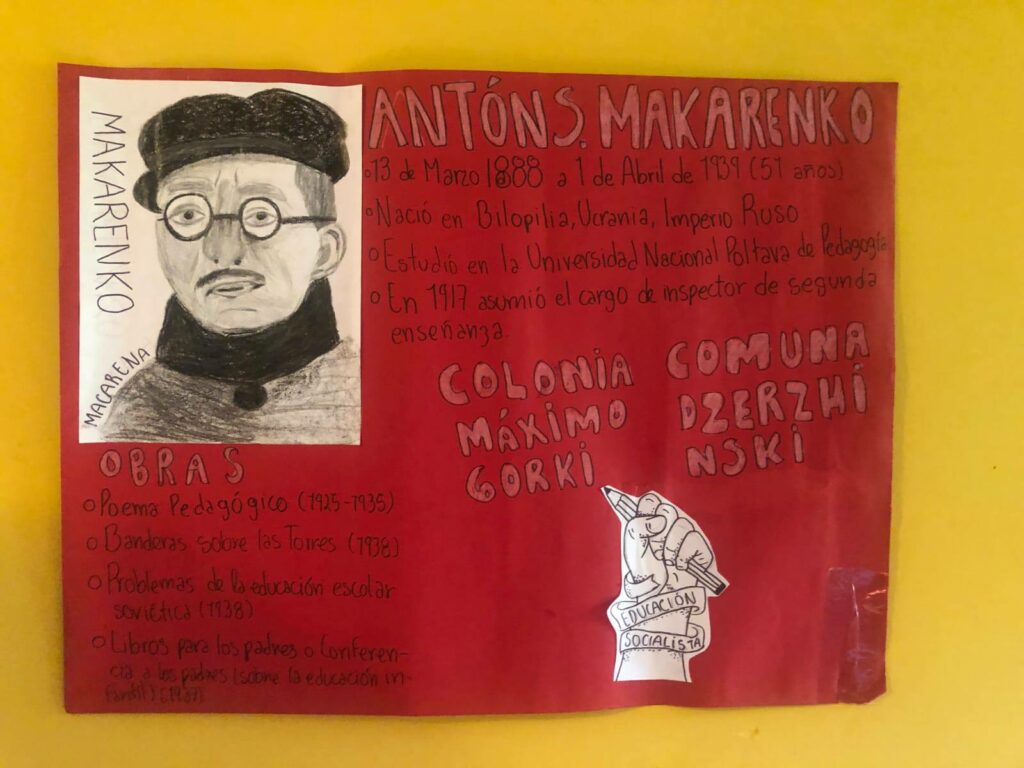 MAKARENKO
MACARENA
ANTÓN S. MAKARENKO
13 de Marzo 1888 a 1 de Abril de 1939 (51 años)
Nació en Bilopilia, Ucrania, Imperio Ruso
Estudió en la Universidad Nacional Poltava de Pedagogía
En 1917 asumió el cargo de inspector de segunda
enseñanza.
COLONIA
MÁXIMO
GORKI
COMUNA
DZERZHI
NSKI
OBRAS
Poema Pedagógico (1925-1935)
Banderas sobre las Torres (1938)
Problemas de la educación escolar
soviética (1938)
Libros para los padres o Conferen-
cia a los padres (sobre la educación in-
fantil) (1937)
EDUCACIÓN
SOCIALISTA